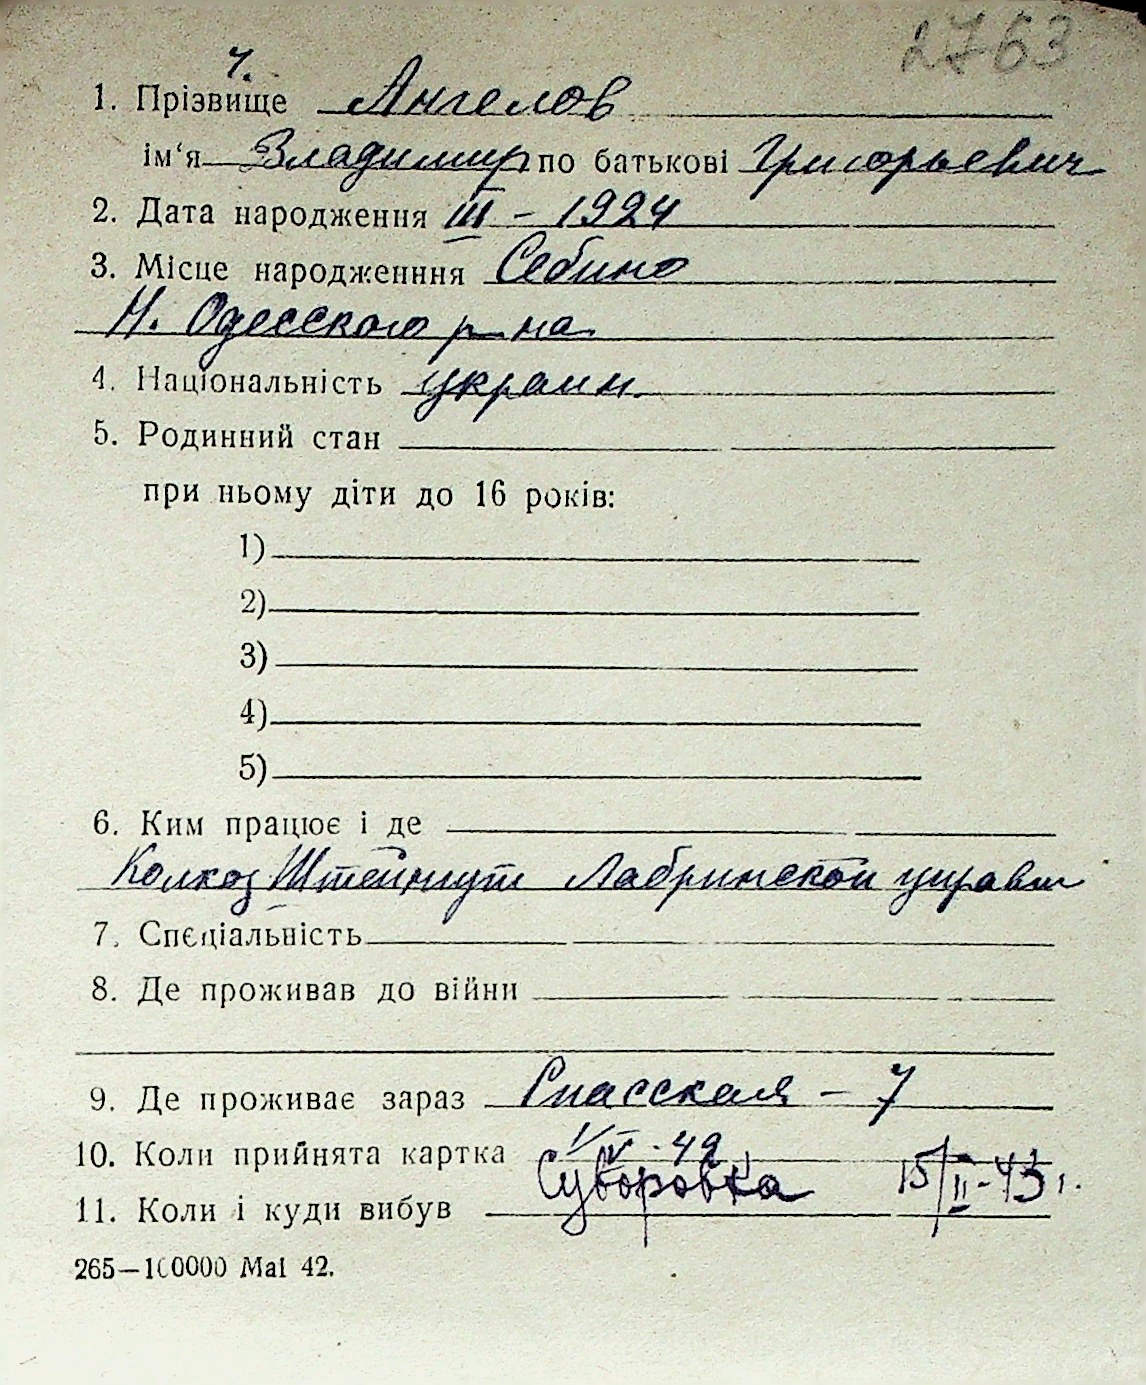 2763
ч.
1. Прізвище Ангелов
ім'я Владимир по батькові Григорьевич
2. Дата народження III - 1924
3. Місце народженння Себино
Н. Одесского р-на
4. Національність украин.
5. Родинний стан
при ньому діти до 16 років:
1)
2)
3)
4)
5)
6. Ким працює і де
Колхоз Штейнгут Лабринской управы
7. Спеціальність
8. Де проживав до війни
9. Де проживає зараз Спасская - 7
10. Коли прийнята картка 1/V - 42
11. Коли і куди вибув Суворовка 15/II - 43 г.
265—100000 Mai 42.